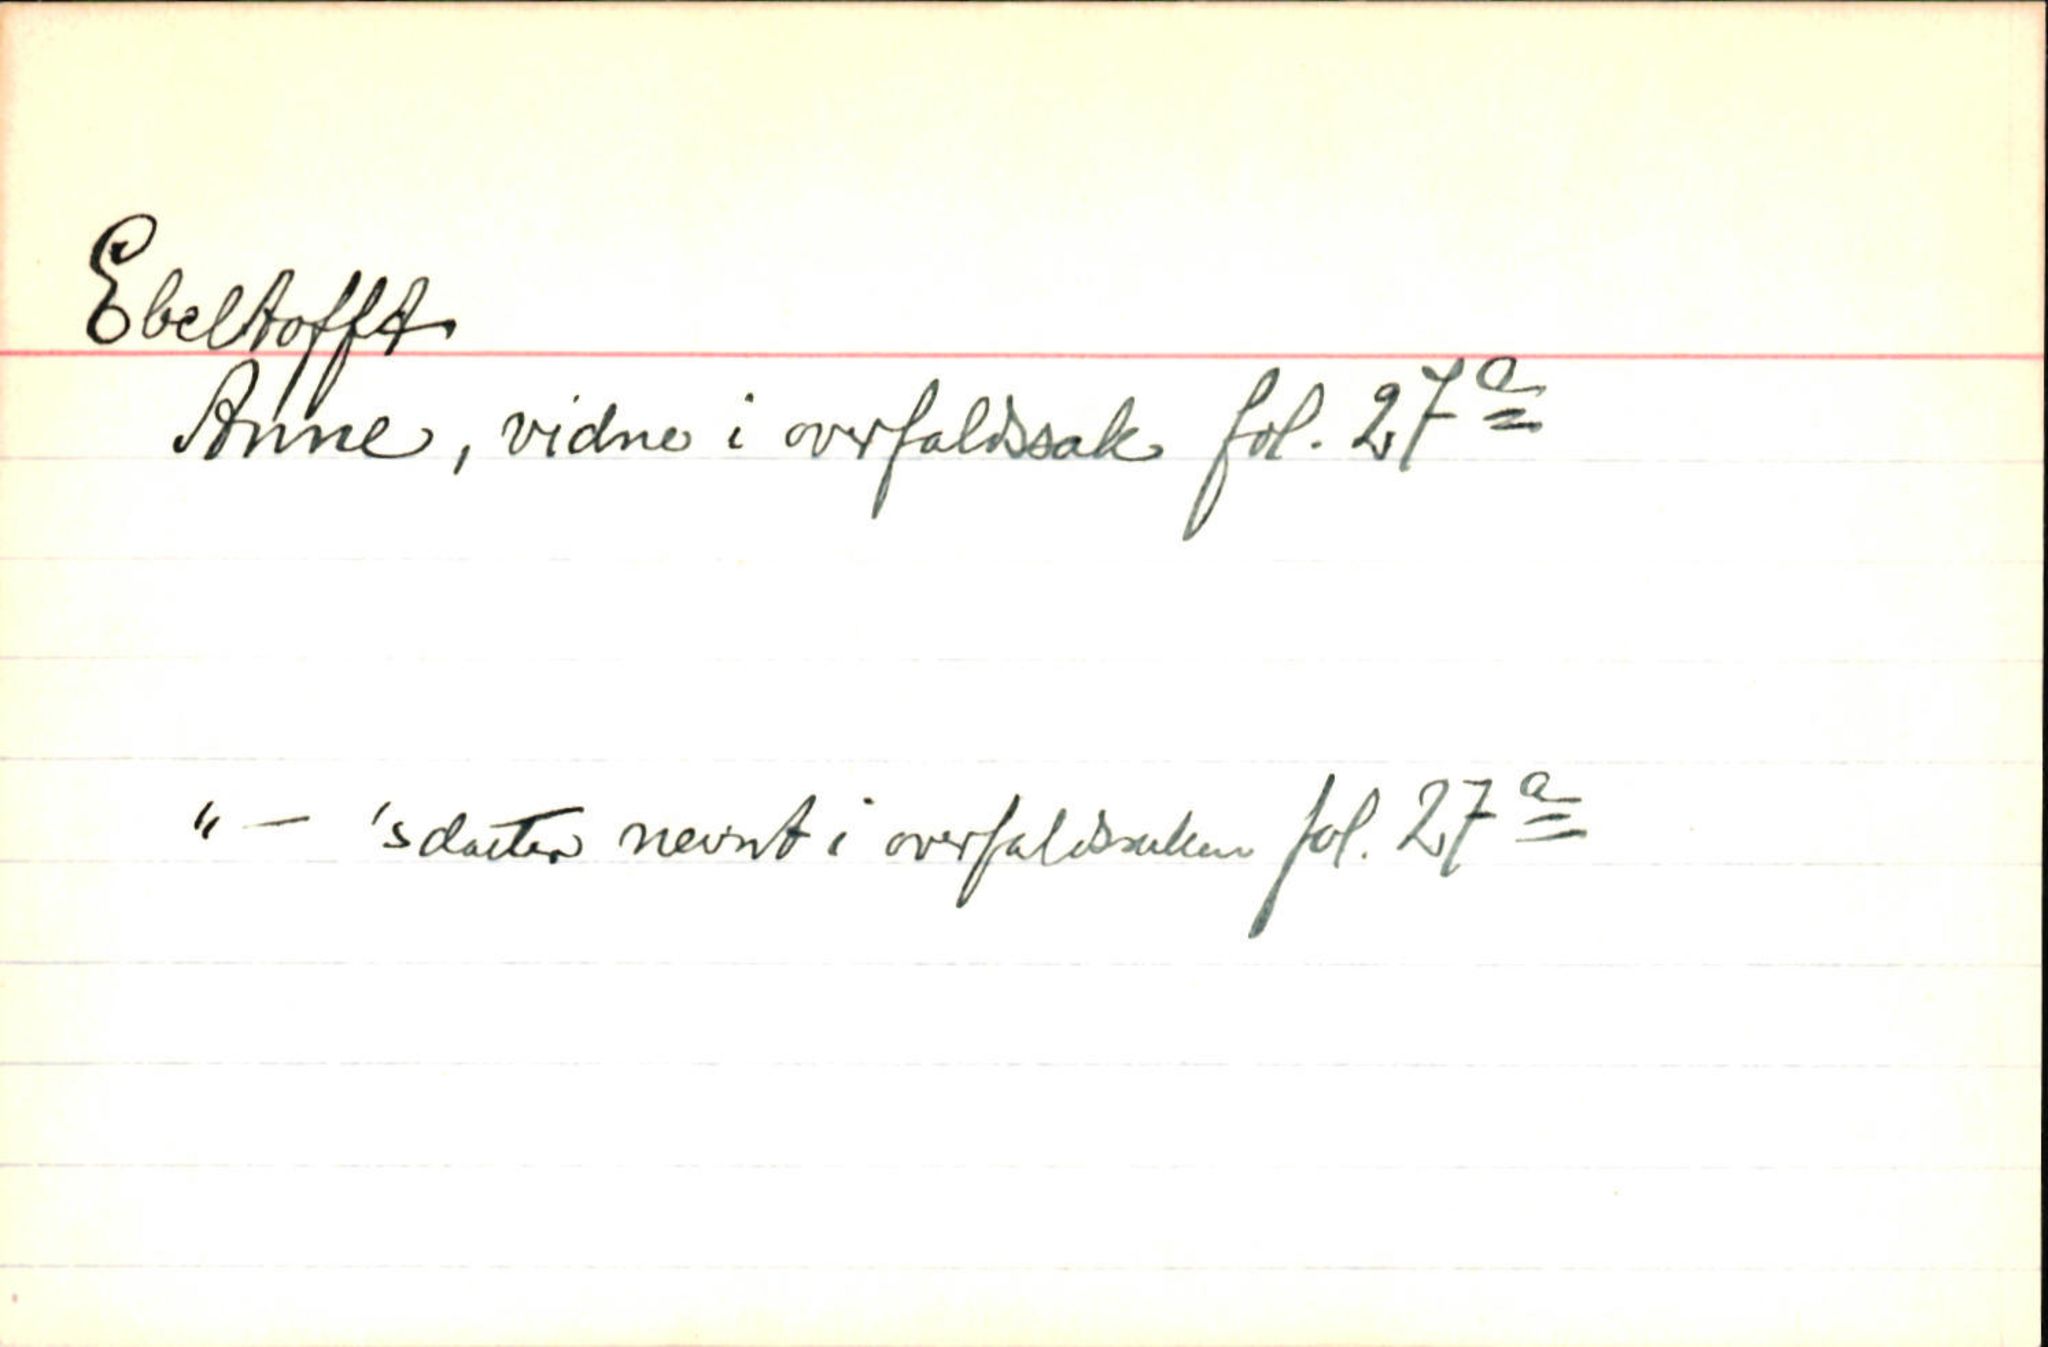 Ebeltofft
Anne, vidne i overfaldssak fol. 27a
"— 'sdatter nevnt i overfaldssaken fol. 27a